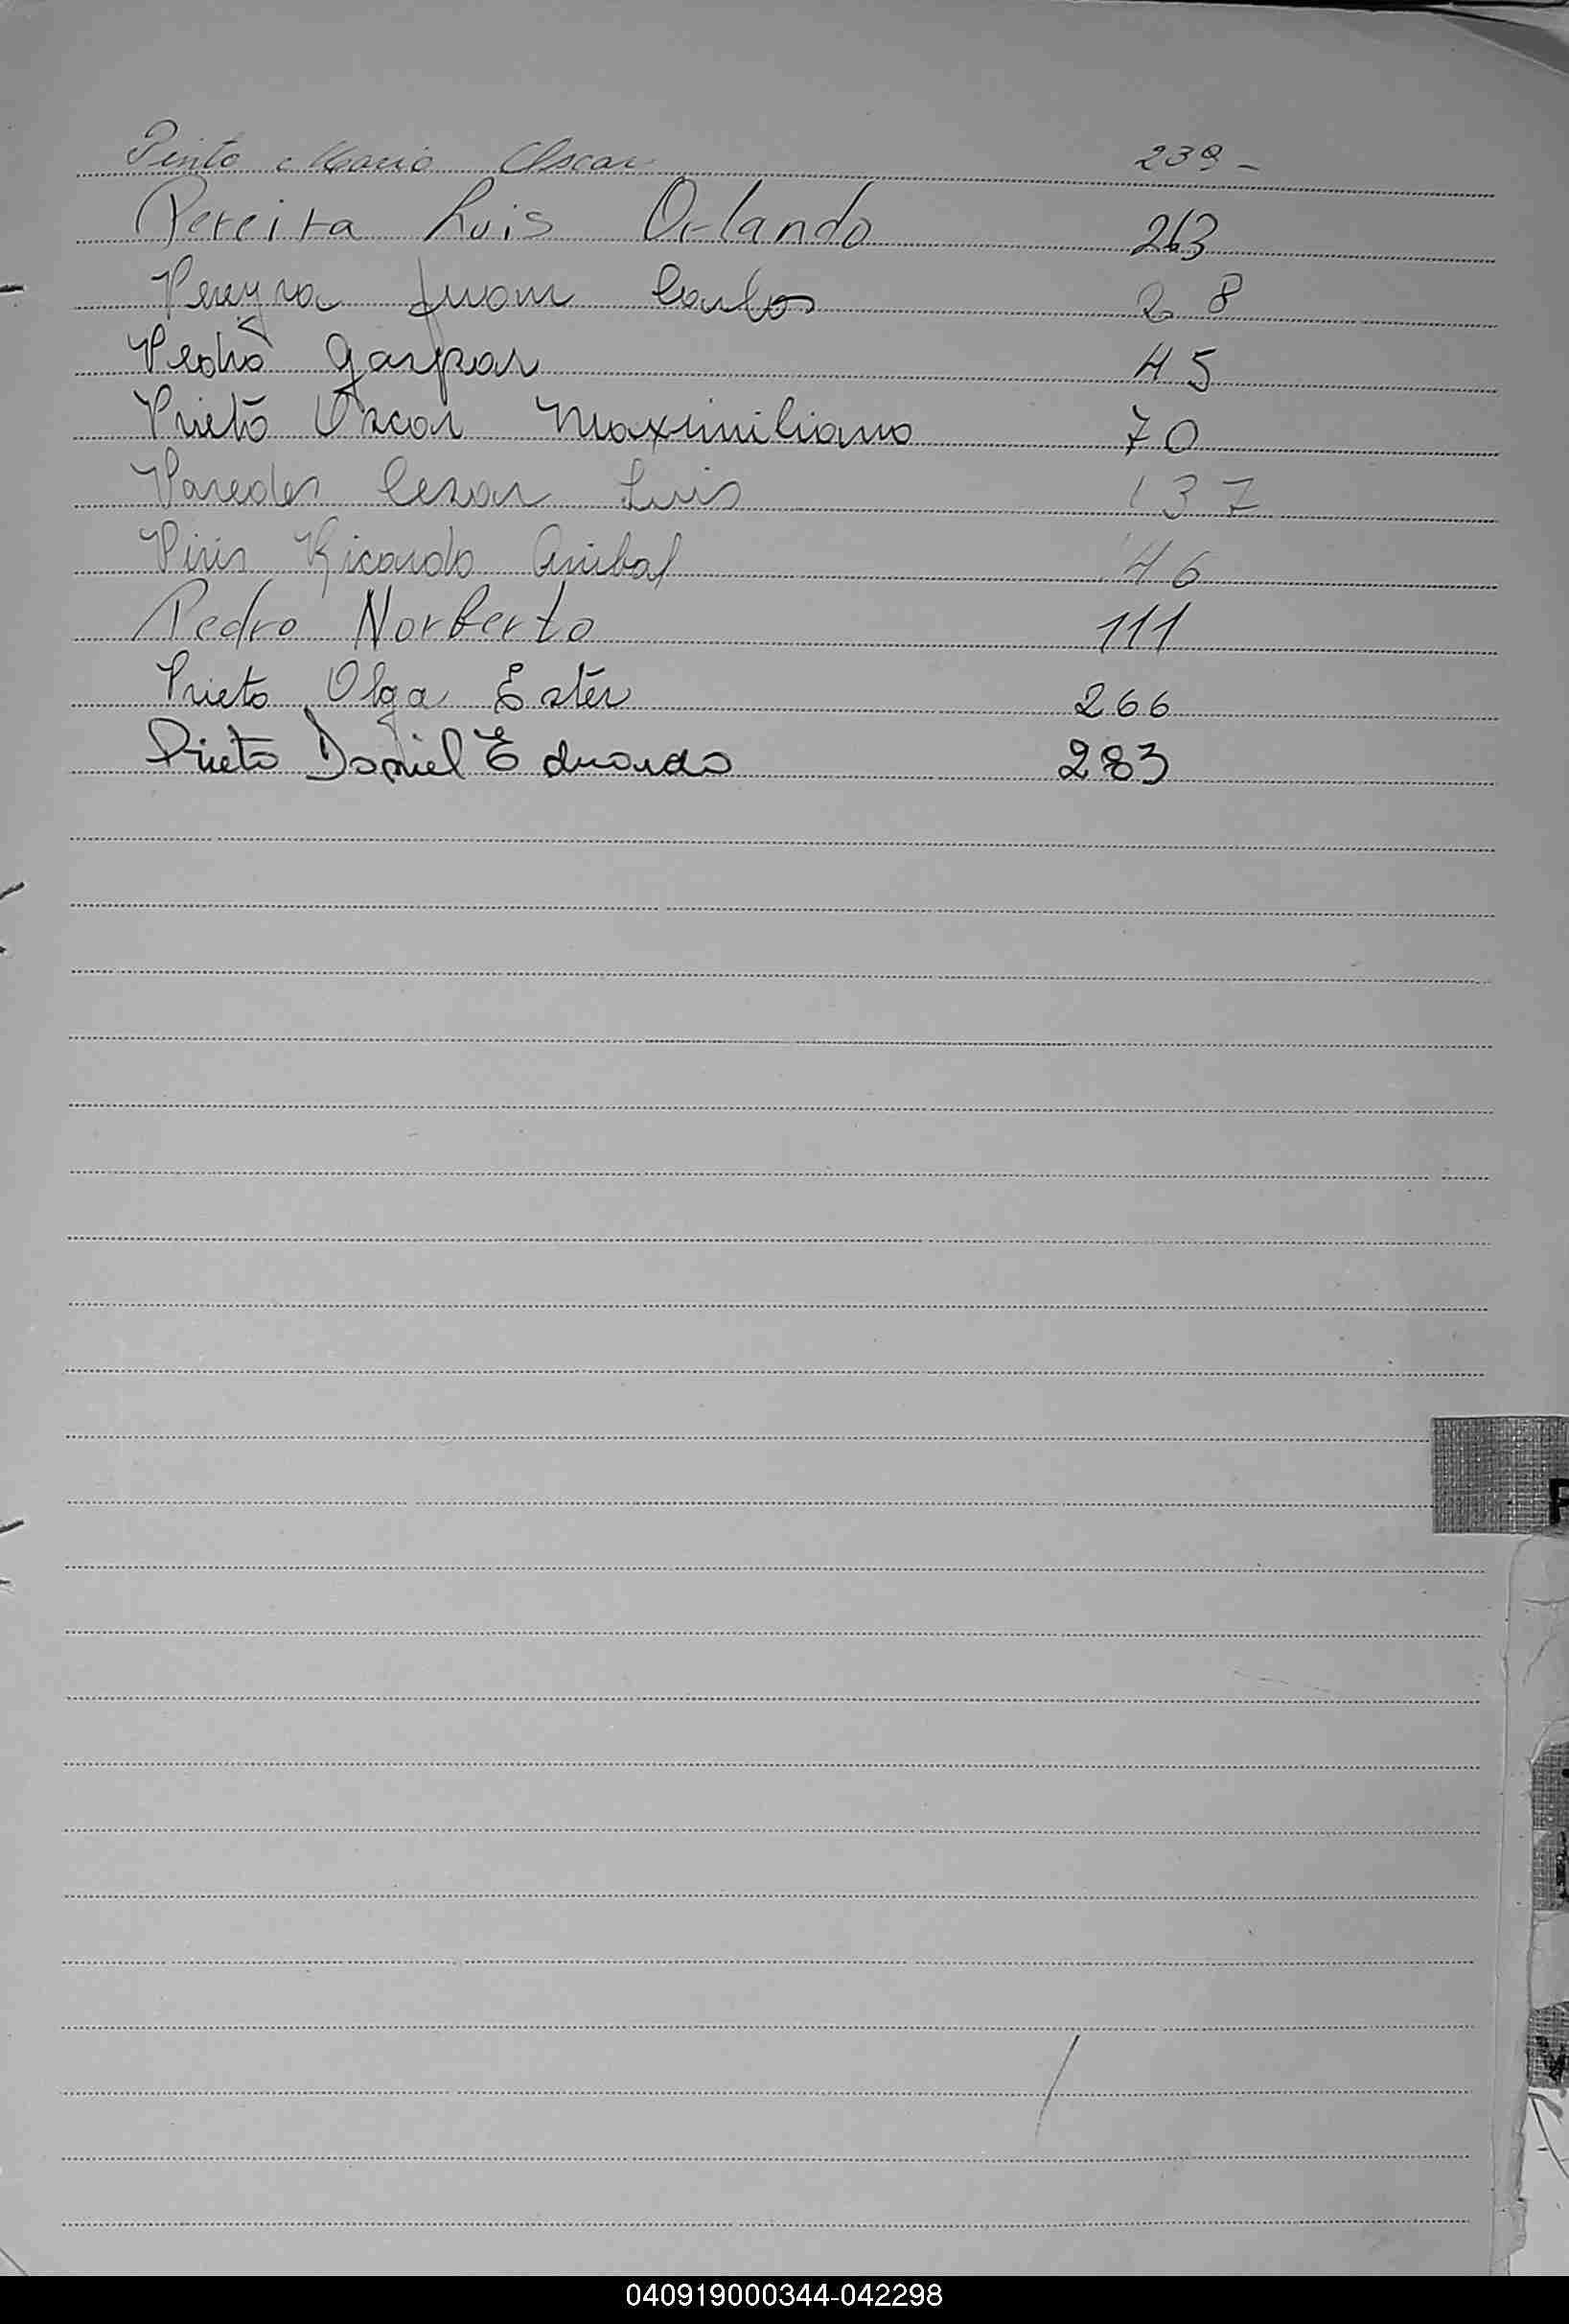 Pinto Mario Oscar 239-
Pereira Luis Orlando 263
Pereyra Juan Carlos 28
Pedro Gaspar 45
Prieto Oscar Maximiliano 70
Paredes Cesar Luis 137
Piris Ricardo Anibal 146
Pedro Norberto 111
Prieto Olga Ester 266
Prieto Daniel Eduardo 283
P
040919000344-042298